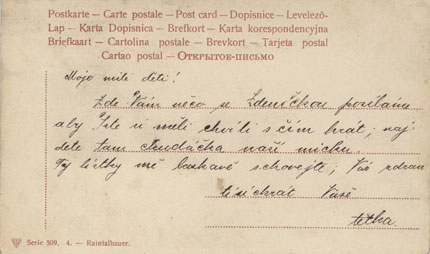 Postkarte – Carte postale – Post card – Dopisnice – Levelező-
Lap – Karta Dopisnica – Brefkort – Karta korespondencyjna
Briefkaart – Cartolina postale – Brevkort – Tarjeta postal
Cartao postal – Открытое-письмо
Moje milé děti!
Zde Vám něco se Zdeničkou posílám
aby jste si měli chvíli s čím hrát, naj
dete tam naši
Ty lístky mě laskavě schovejte, Vás zdraví
tisíckrát Vaše
tetka.
Serie 509. 4. – Raintalhauer.